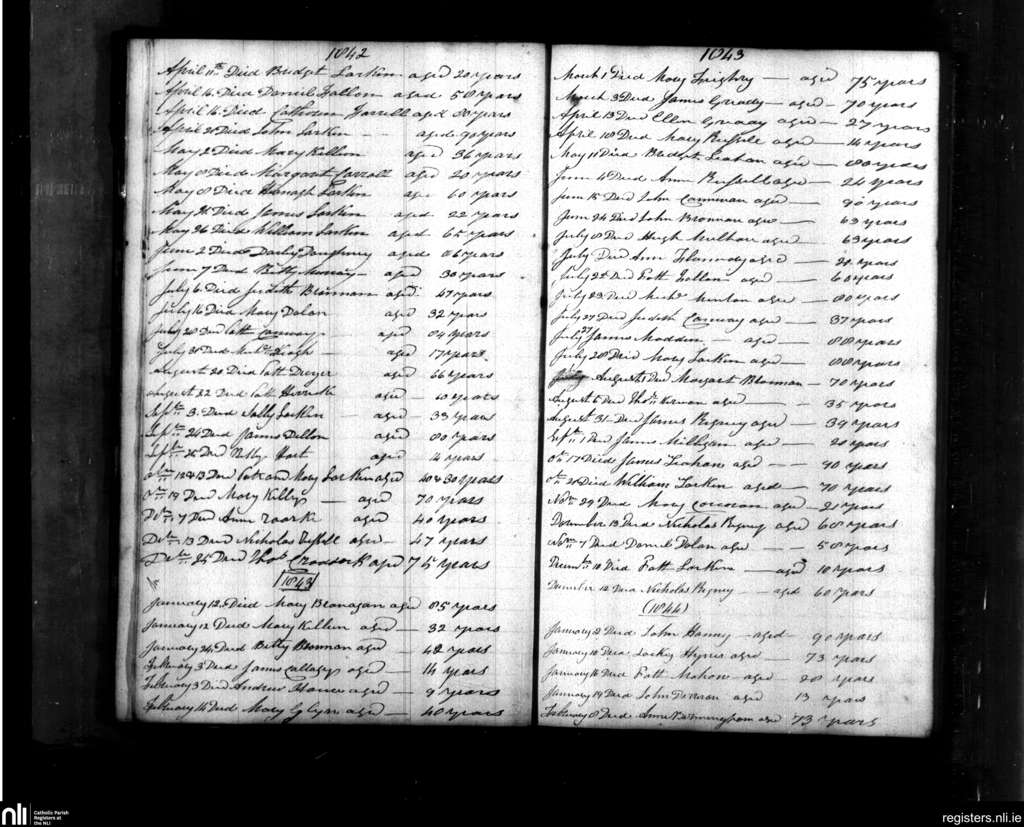 1842
April 11th Died Bridget Larkin aged 20 years
April 14 Died Daniel Fallon aged 58 years
April 16 Died Catherine Farrell aged 80 years
April 21 Died John Larkin — aged 90 years
May 2 Died Mary Killeen aged 36 years
May 8 Died Margaret Carroll aged 20 years
May 8 Died Honagh Larkin age 60 years
May 21 Died James Larkin aged 22 years
May 26 Died William Larkin aged 65 years
June 2 Died Darby Doughney aged 86 years
June 7 Died Betty Murray — aged 30 years
July 6 Died Judith Brennan aged 47 years
July 16 Died Mary Dolan aged 32 years
July 28 Died Cath Conway aged 84 years
July 31 Died Keogh — aged 17 years
August 20 Died Patt Dwyer aged 66 years
August 22 Died aged — 40 years
Sept 3 Died Sally Larkin — aged — 33 years
Sept 24 Died James Dillon aged 80 years
Sept 26 Died Betty Hart aged 4 years
12 & 13 Died Pat and Mary Larkin aged 40 & 30 years
19 Died Mary Killeys — aged 70 years
7 Died Anne Roork aged — 40 years
Dec 13 Died Nicholas Russell aged — 47 years
Dec 25 Died Thos Craddock aged 75 years
1843
January 12 Died Mary Branagan aged 85 years
January 12 Died Mary Killeen aged — 32 years
January 24 Died Betty Brennan aged — 42 years
February 3 Died James Callaghy aged — 14 years
February 3 Died Andrew aged — 9 years
February 14 Died Mary Glynn aged — 40 years
1843
March 1 Died Mary — aged 75 years
March 3 Died James Grady — aged — 70 years
April 13 Died Ellen Grady aged — 27 years
April 18 Died Mary Russele aged — 14 years
May 11 Died Bridget Leahan aged — 80 years
June 4 Died Ann Russell aged — 24 years
June 15 Died John Cunnivan aged — 90 years
June 24 Died John Brennan aged — 63 years
July 8 Died Hugh aged — 63 years
July Died Ann aged — 21 years
July 21 Died Patt Fallon aged — 60 years
July 23 Died aged — 80 years
July 27 Died Judith Conway aged — 37 years
July 27 James Madden — aged — 88 years
July 28 Died Mary Larkin aged — 88 years
August 1 Died Margaret Brennan — 70 years
August 5 Died Thos Kirwan aged — 35 years
August 31 Died James Rigney aged — 39 years
Sept 1 Died James Milligan aged — 20 years
Oct 17 Died James Leahan aged — — 40 years
Oct 20 Died William Larkin aged — 70 years
Nov 29 Died Mary Corcoran aged — 21 years
December 13 Died Nicholas Rigney aged 60 years
7 Died Daniel Dolan aged — — 58 years
Decem 10 Died Patt Larkin — aged 10 years
December 12 Died Nicholas Rigney — aged 60 years
(1844)
January 2 Died John Hanny — aged — 90 years
January 10 Died Lacky Hynes aged — 73 years
January 16 Died Patt Mahon — aged — 28 years
January 19 Died John aged 13 years
February 8 Died Anne Birmingham aged 73 years
nli
Catholic Parish
Registers at
the NLI
registers.nli.ie